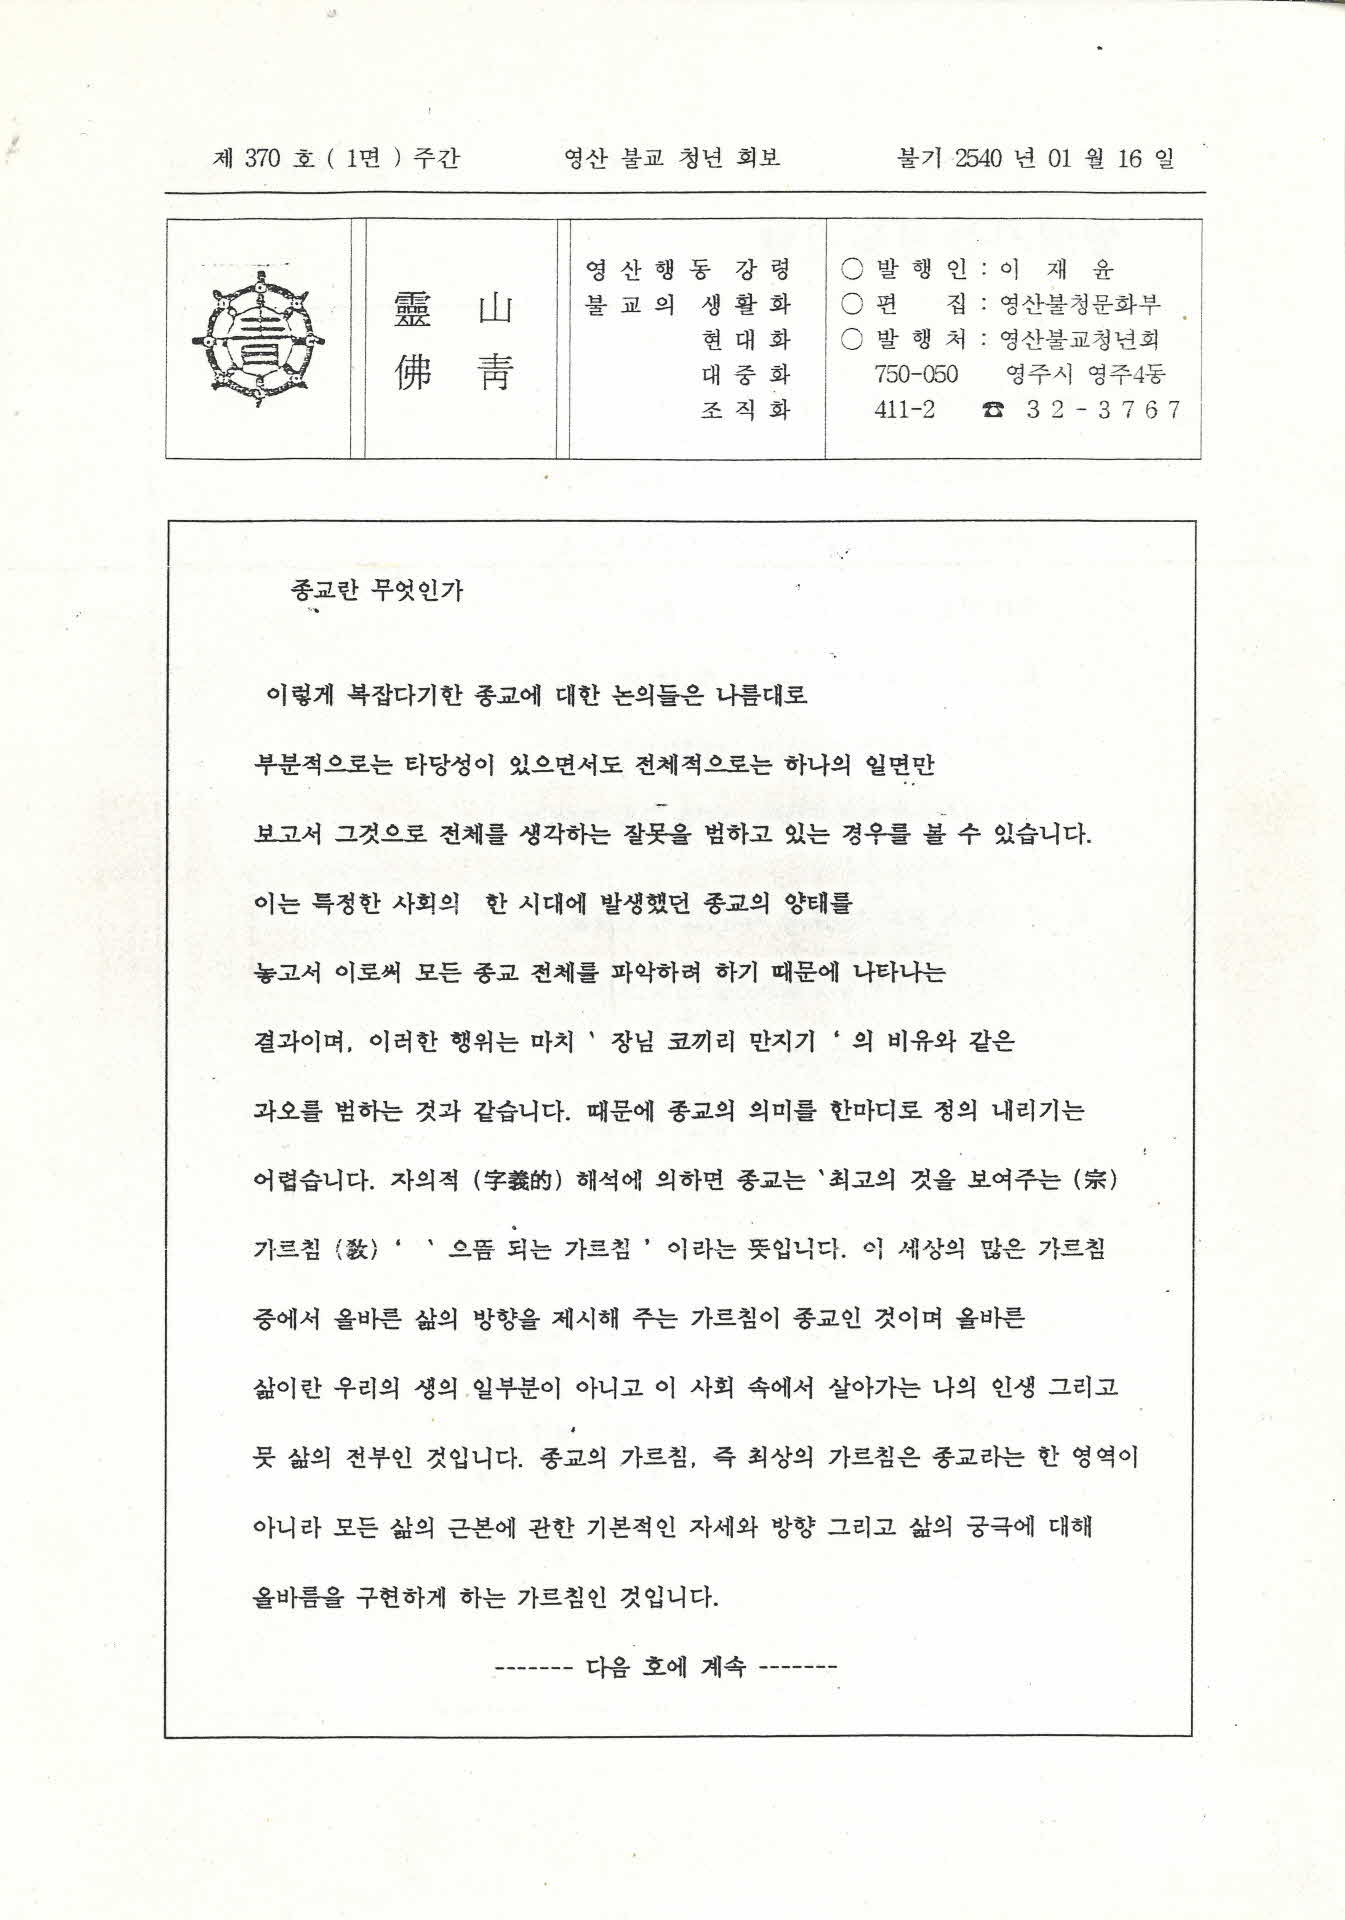 제 370 호 ( 1면 ) 주간 영산 불교 청년 회보 불기 2540 년 01 월 16 일
靈 山
佛 靑
영 산 행 동 강 령
불 교 의 생 활 화
현 대 화
대 중 화
조 직 화
○ 발 행 인 : 이 재 윤
○ 편 집 : 영산불청문화부
○ 발 행 처 : 영산불교청년회
750-050 영주시 영주4동
411-2 ☎ 3 2 - 3 7 6 7
종교란 무엇인가
이렇게 복잡다기한 종교에 대한 논의들은 나름대로
부분적으로는 타당성이 있으면서도 전체적으로는 하나의 일면만
보고서 그것으로 전체를 생각하는 잘못을 범하고 있는 경우를 볼 수 있습니다.
이는 특정한 사회의 한 시대에 발생했던 종교의 양태를
놓고서 이로써 모든 종교 전체를 파악하려 하기 때문에 나타나는
결과이며, 이러한 행위는 마치 ‵ 장님 코끼리 만지기 ‘ 의 비유와 같은
과오를 범하는 것과 같습니다. 때문에 종교의 의미를 한마디로 정의 내리기는
어렵습니다. 자의적 (字義的) 해석에 의하면 종교는 ‵최고의 것을 보여주는 (宗)
가르침 (敎) ‘ ‵ 으뜸 되는 가르침 ’ 이라는 뜻입니다. 이 세상의 많은 가르침
중에서 올바른 삶의 방향을 제시해 주는 가르침이 종교인 것이며 올바른
삶이란 우리의 생의 일부분이 아니고 이 사회 속에서 살아가는 나의 인생 그리고
뭇 삶의 전부인 것입니다. 종교의 가르침, 즉 최상의 가르침은 종교라는 한 영역이
아니라 모든 삶의 근본에 관한 기본적인 자세와 방향 그리고 삶의 궁극에 대해
올바름을 구현하게 하는 가르침인 것입니다.
------- 다음 호에 계속 -------